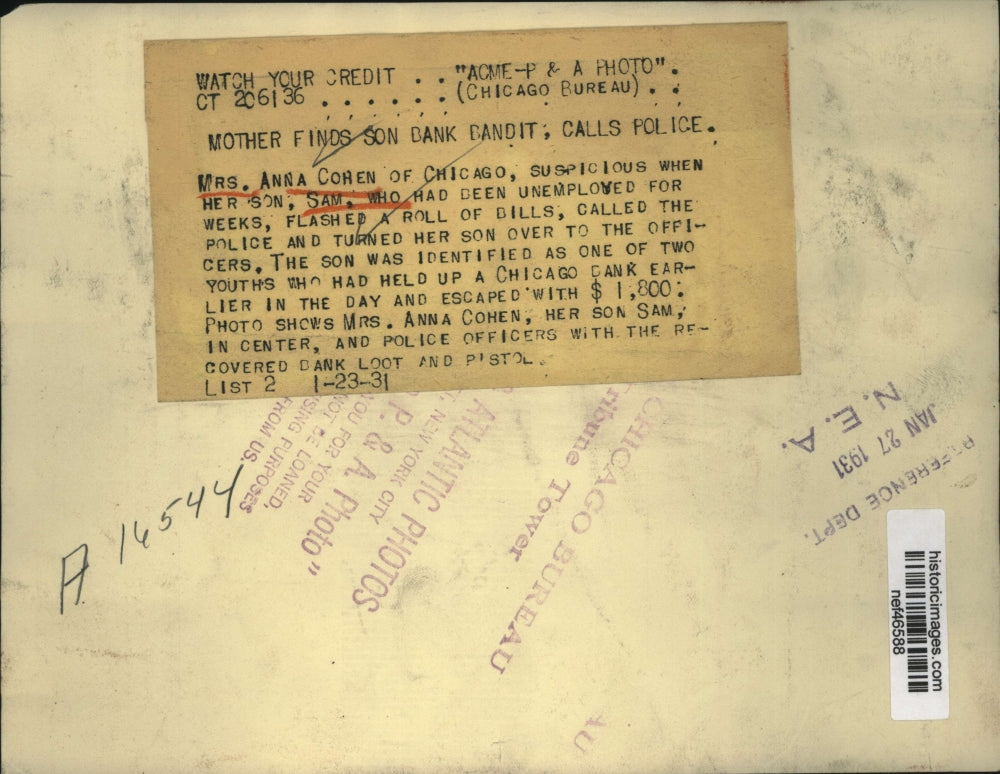 WATCH YOUR CREDIT . . "ACME-P & A PHOTO".
CT 206136 . . . . . . (CHICAGO BUREAU) . .
MOTHER FINDS SON BANK BANDIT, CALLS POLICE.
MRS. ANNA COHEN OF CHICAGO, SUSPICIOUS WHEN
HER SON, SAM, WHO HAD BEEN UNEMPLOYED FOR
WEEKS, FLASHED A ROLL OF BILLS, CALLED THE
POLICE AND TURNED HER SON OVER TO THE OFFI-
CERS. THE SON WAS IDENTIFIED AS ONE OF TWO
YOUTHS WHO HAD HELD UP A CHICAGO BANK EAR-
LIER IN THE DAY AND ESCAPED WITH $ 1,800.
PHOTO SHOWS MRS. ANNA COHEN, HER SON SAM,
IN CENTER, AND POLICE OFFICERS WITH THE RE-
COVERED BANK LOOT AND PISTOL.
LIST 2 1-23-31
ATLANTIC PHOTOS
NEW YORK CITY
P. & A. Photo"
YOU FOR YOUR
NOT BE LOANED
SING PURPOSES
FROM US.
CHICAGO BUREAU
Tribune Tower
AU
A 16544
REFERENCE DEPT.
JAN 27 1931
N. E. A.
historicimages.com
nef46588